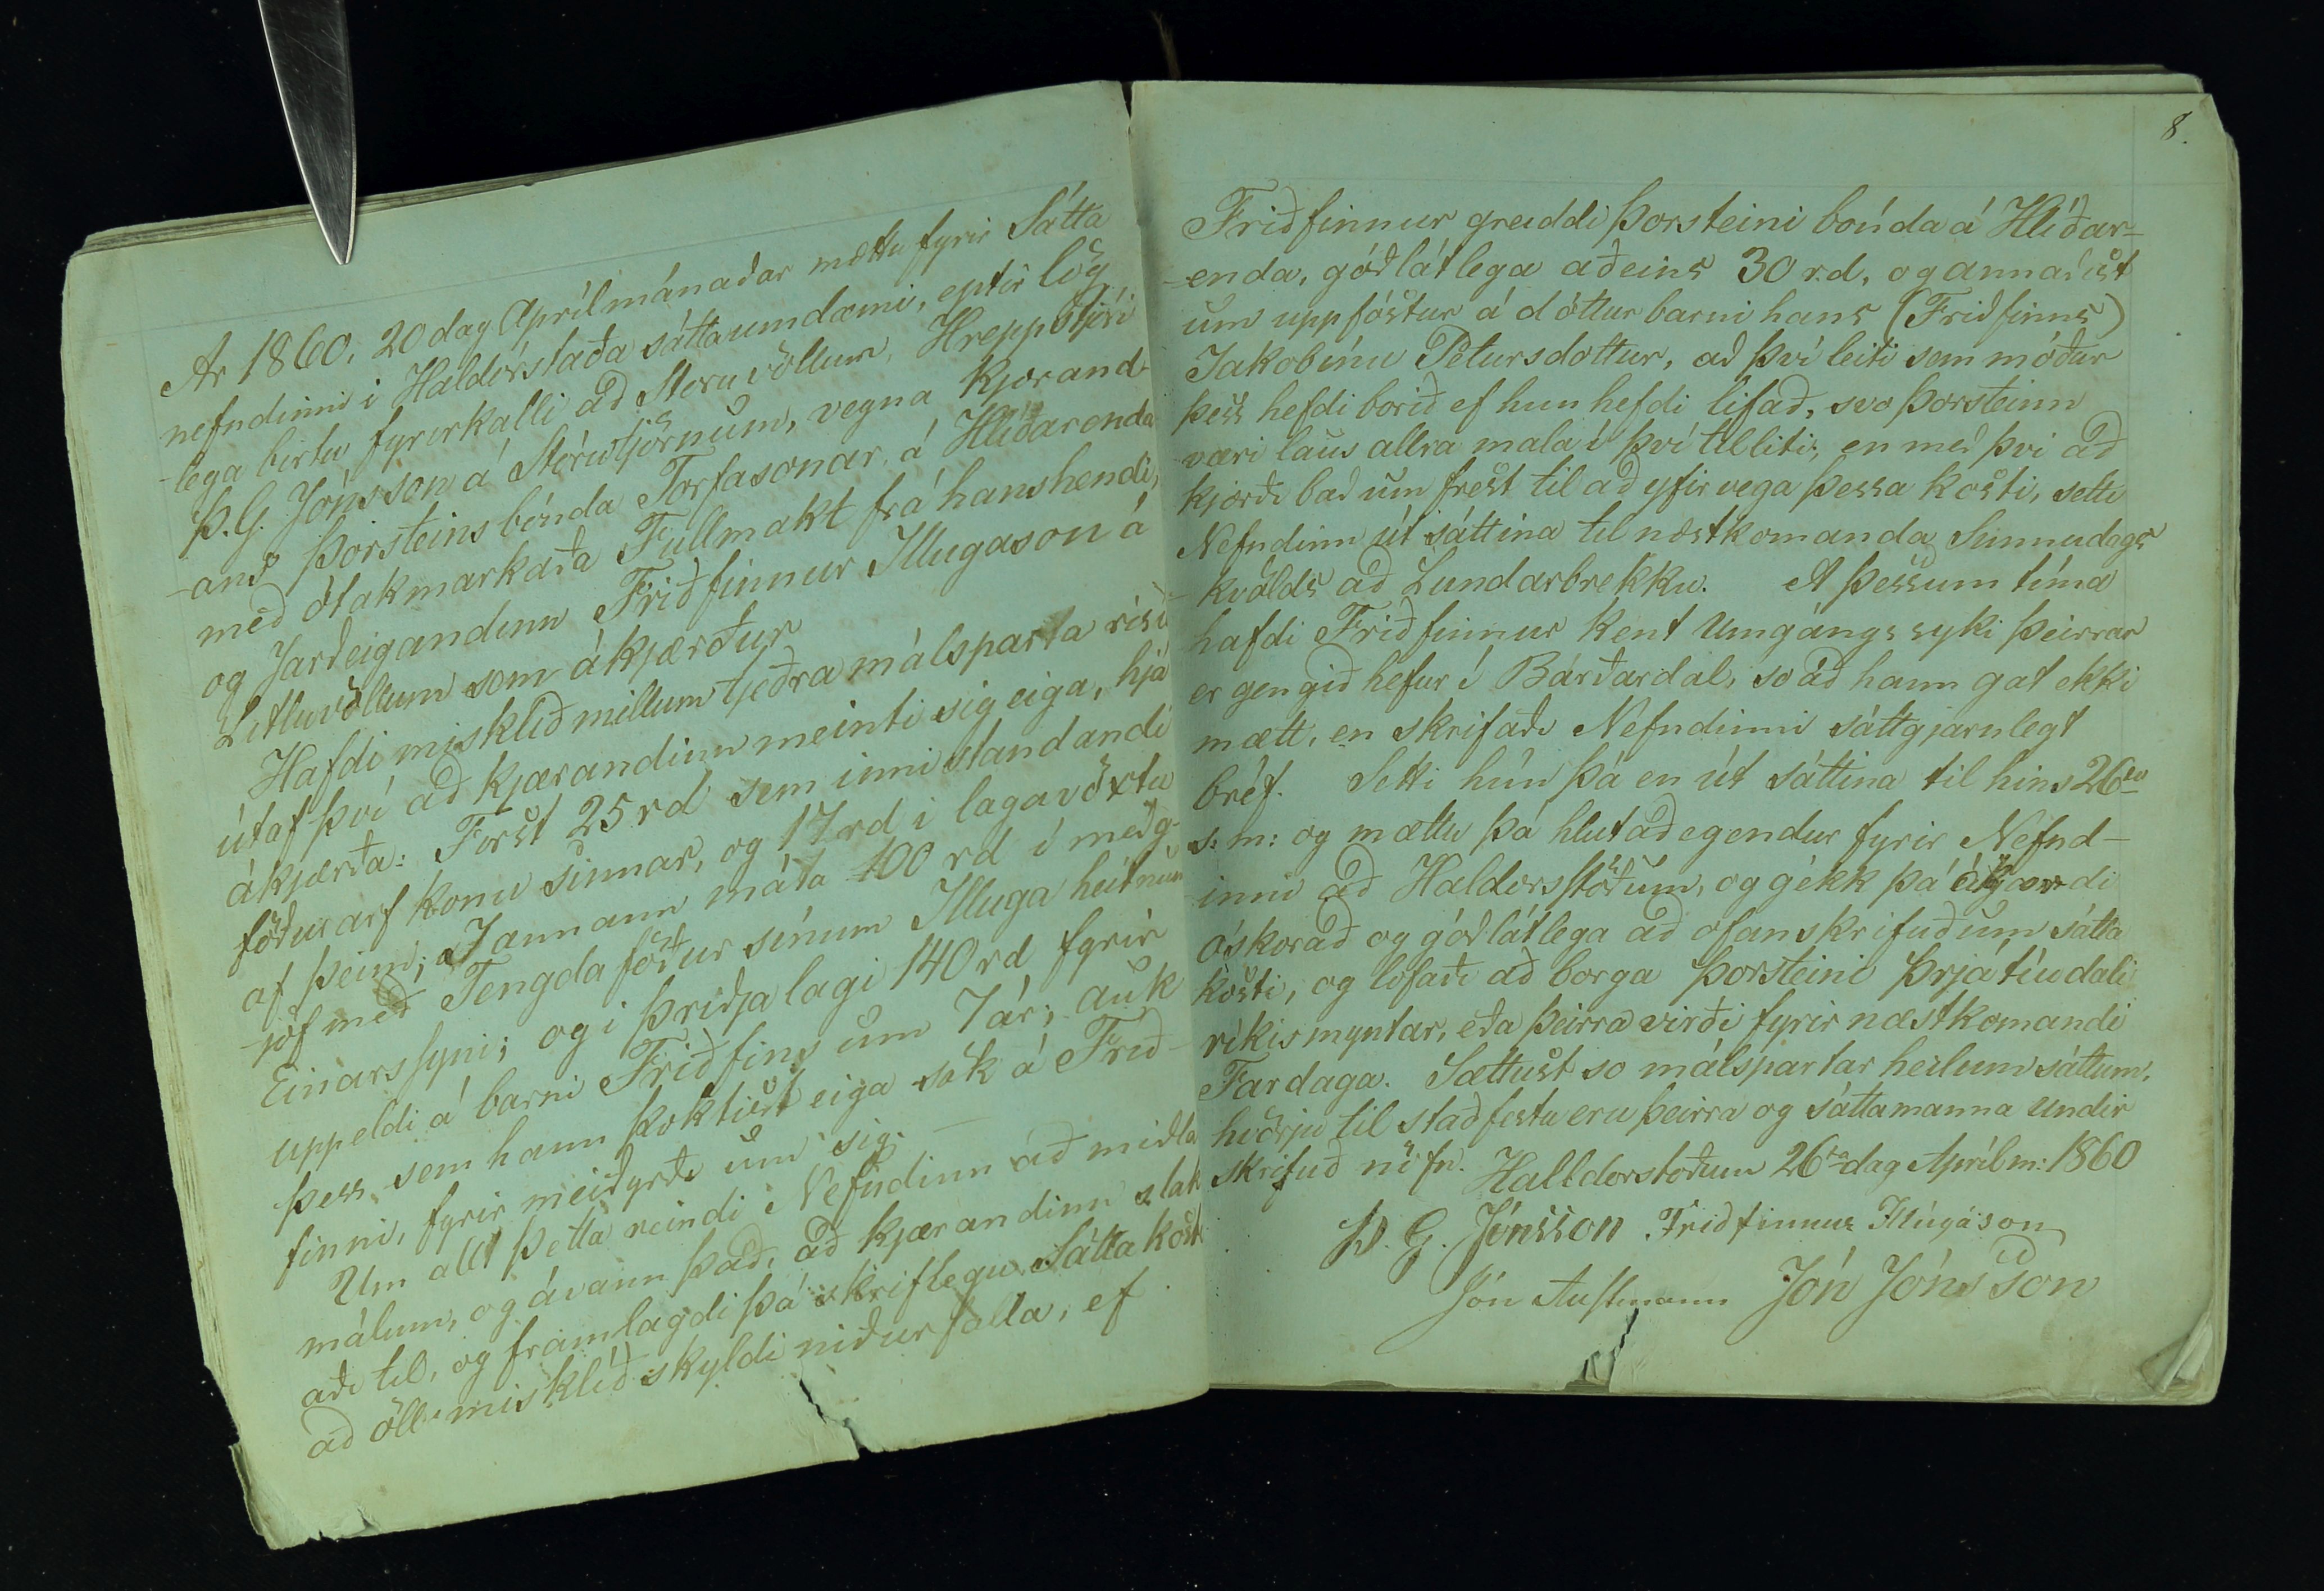 Ar 1860, 20 dag Aprílmánaðar mættu fyrir Sátta
nefndinni i Haldórstaða sáttaumdæmi, eptir lög
-lega birtu fyrirkalli að Storuvöllum, Hreppstjóri
Þ. G. Jónsson á Stórutjörnum, vegna kjærand-
-ans Þorsteins bónda Torfasonar á Hlíðarenda
með ótakmarkaða Fullmakt frá hans hendi,
og Jarðeigandinn Friðfinnur Illugason á
Litluvöllum som ákjærður
Hafdi misklið millum tjeðra málsparta risið
útaf því að kjærandinn meinti sig eiga, hjá
ákjærða: Forst 25 rd sem innistandandi
föðurarf konu sinnar, og 17 rd i lagavöxtu
af þeim; I annann máta 100 rd í meðg-
-jöf með Tengdaföður sínum Illuga heitnum
Einarssyni; og i þriðja lagi 140 rd fyrir
uppeldi á barni Friðfins um 7 ár; auk
þess sem hann þoktist eiga sök á Frið-
finni, fyrir meiðyrði um sig. —
Um allt þetta reindi Nefndinn að miðla
málum, og ávann það, að kjærandinn slak
aði til, og framlagdi þá skriflegu Sátta kosti
að öll misklið skyldi niðurfalla, ef
8.
Friðfinnur greiddi Þorsteini bónda á Hlíðar-
-enda, góðlátlega aðeins 30 rd, og annaðist
um uppfóstur á dótturbarni hans (Friðfinns)
Jakobínu Petursdottur, að því leiti sem móður
þess hefdi borið ef hun hefdi lifað, svo Þorsteinn
væri laus allra mala í því tilliti; en með þvi að
kjærði bað um frest til að yfirvega þessa kosti, setti
Nefndinn út sáttina til næstkomanda Sunnudags
-kvölds að Lundarbrekku. A þessum tíma
hafdi Friðfinnur kent Umgángssyki þeirrar
er gengið hefur í Bárðardal, so að hann gat ekki
mætt, en skrifaði Nefndinni sáttgjarnlegt
bréf. Setti hún þá en út sáttina til hins 26ta
s: m: og mættu þá hlutaðegendur fyrir Nefnd-
inni að Haldorsstöðum, og gékk þá ákjærdi
óskorað og góðlátlega að ofanskrifuðum sátta
kosti, og lofaði að borga Þorsteini Þrjátíu dali
rikismyntar, eða þeirra virði fyrir næstkomandi
Fardaga. Sættust so málspartar heilum sáttum,
hvörju til staðfestu eru þeirra og sáttamanna undir
skrifuð nöfn. Halldorstoðum 26ta dag Aprílm: 1860
Þ. G. Jónsson Friðfinnur Illugason
Jón Austmann Jón Jónsson